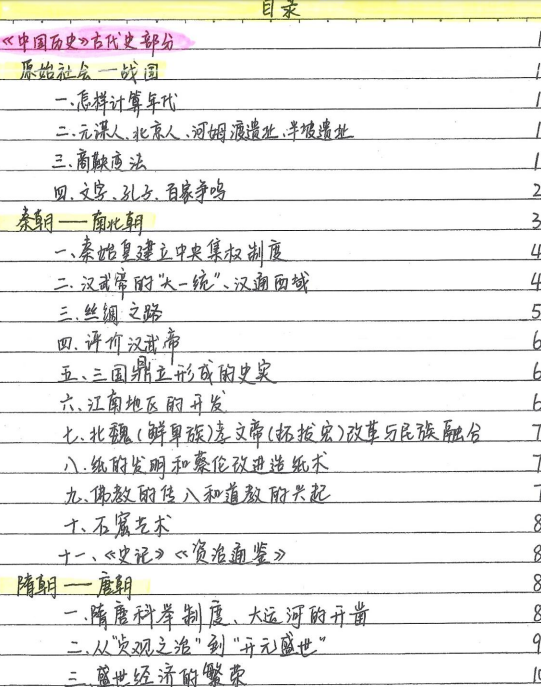 目录
《中国历史》古代史部分 1
原始社会一战国 1
一.怎样计算年代 1
二.元谋人、北京人、河姆渡遗址、半坡遗址 1
三.商鞅变法 1
四.文字、孔子、百家争鸣 2
秦朝——南北朝 3
一、秦始皇建立中央集权制度 4
二.汉武帝的"大一统"、汉通西域 4
三.丝绸之路 5
四.评价汉武帝 6
五、三国鼎立形成的史实 6
六、江南地区的开发 6
七、北魏(鲜卑族)孝文帝(拓拔宏)改革与民族融合 7
八.纸的发明和蔡伦改进造纸术 7
九、佛教的传入和道教的兴起 7
十、石窟艺术 8
十一、《史记》《资治通鉴》 8
隋朝——唐朝 8
一.隋唐科举制度、大运河的开凿 8
二.从"贞观之治"到"开元盛世" 9
三.盛世经济的繁荣 10